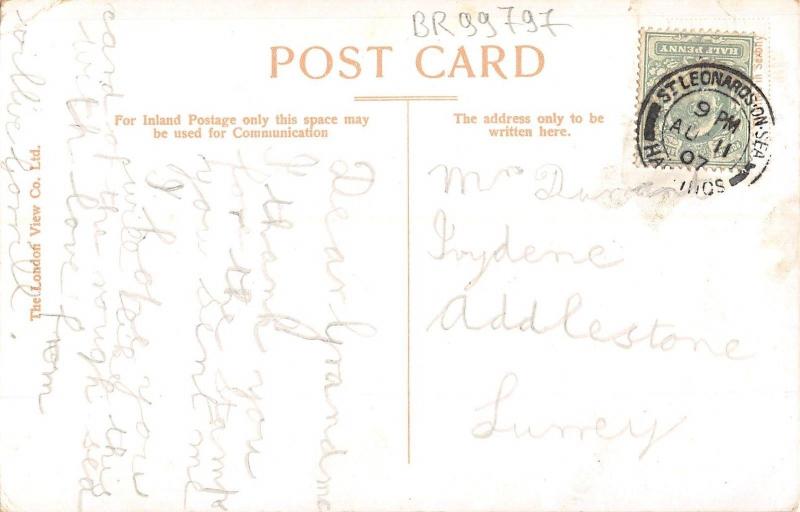 BR99797
POST CARD
For Inland Postage only this space may
be used for Communication
The address only to be
written here.
HALF PENNY
ST LEONARDS-ON-SEA
9 PM
AU 11
07
Mrs
Ivydene
Addlestone
Surrey
Dear Grandma
I thank you
for the stamps
you sent me
I hope you
will like this
card of the rough sea
with love from
willie
The London View Co. Ltd.